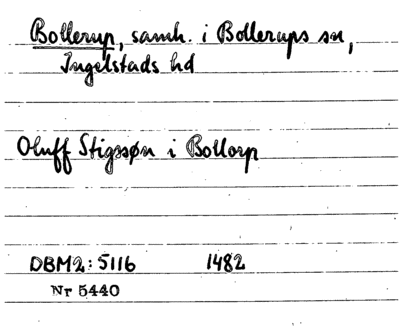 Bollerup, samh. i Bollerups sn,
Ingelstads hd
Oluff Stigssøn i Bollorp
DBM2: 5116 1482
Nr 5440